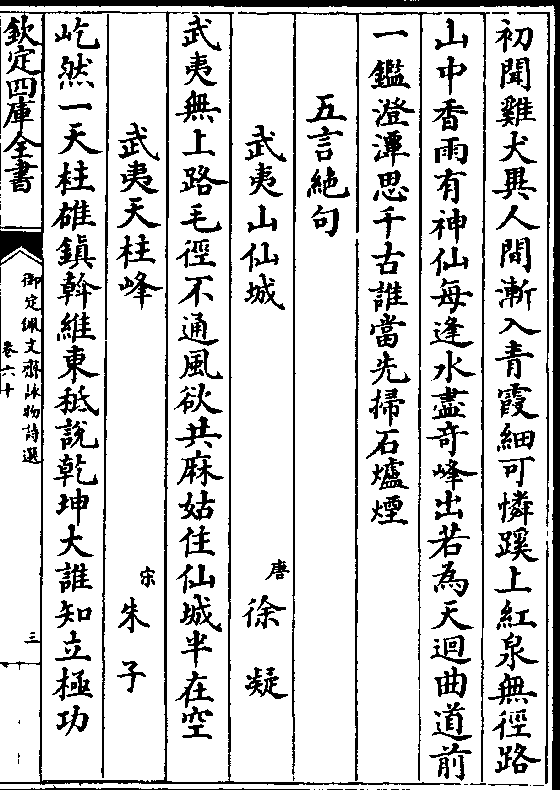 初聞雞犬異人間漸入青霞細可憐蹊上紅泉無徑路
山中香雨有神仙每逢水盡奇峰出若為天迴曲道前
一鑑澄潭思千古誰當先掃石爐煙
五言絶句
武夷山仙城
唐
徐凝
武夷無上路毛徑不通風欲共麻姑住仙城半在空
武夷天柱峰
宋
朱子
屹然一天柱雄鎮斡維東秪說乾坤大誰知立極功
欽定四庫全書
御定佩文齋詠物詩選
卷六十
三